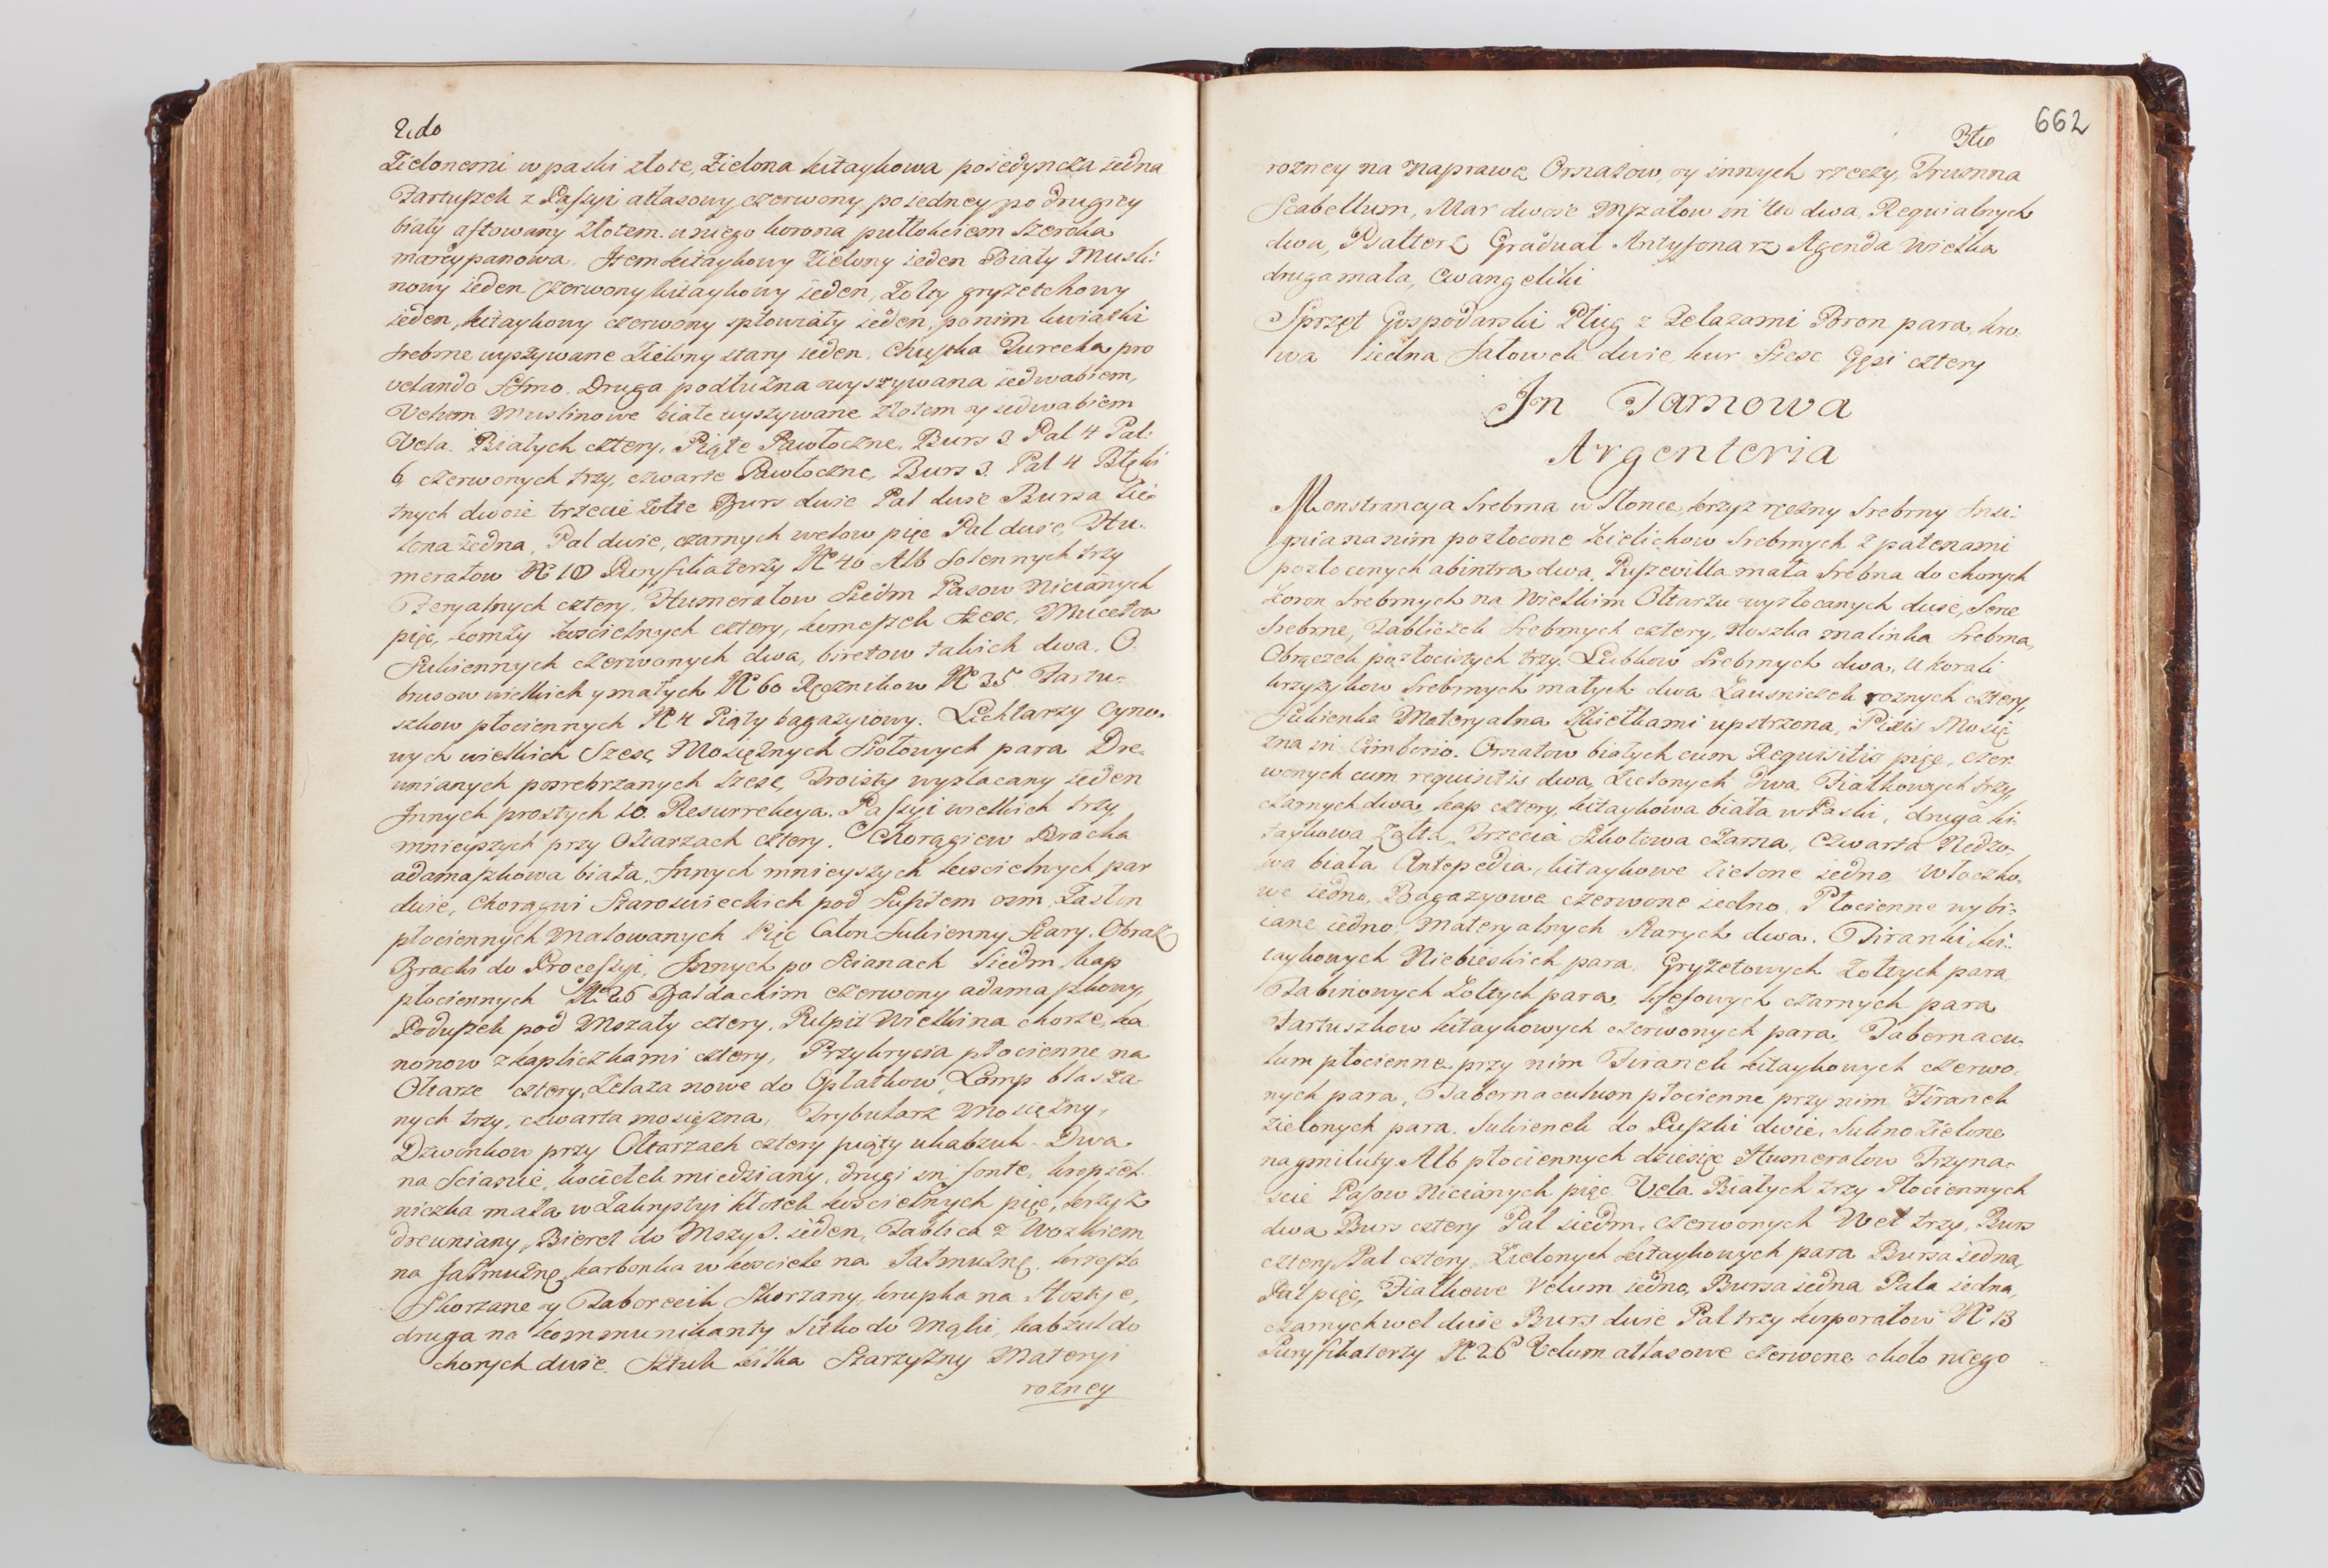 2do
Zielonemi w paski złote, Zielona kitaykowa poiedyncza iedna
Fartuszek z Passyi atłasowy czerwony po iedney po drugiey
biały aftowany złotem. u niego korona pułtokciem szeroka
marcypanowa. Item kitaykowy Zielony ieden Biały Musli:
nowy ieden Czerwony kitaykowy ieden, Zołty gryzetchowy
ieden, kitaykowy czerwony spłowiały ieden, po nim kwiatki
srebrne wyszywane Zielony stary ieden. Chustka Turecka pro
velando SSmo. Druga podłużna wyszywana iedwabiem,
Velum Muslinowe białe wyszywane złotem y iedwabiem
Vela. Białych cztery, Piąte Pawłoczne. Burs 3 Pal 4 Pal:
6, czerwonych trzy, czwarte Pawłoczne, Burs 3. Pal 4 Błęki
tnych dwoie trzecie żołte Burs dwie Pal dwie Bursa Zie:
lona iedna, Pal dwie, czarnych welow pięc Pal dwie, Hu:
merałow Nº 10 Puryfikaterzy Nº 40 Alb Solennych trzy
Feryalnych cztery. Humerałow Siedm Pasow Nicianych
pięc, komży koscielnych cztery, komeszek szesc, Mucetow
Sukiennych czerwonych dwa, biretow takich dwa. O:
brusow wielkich y małych Nº 60 Ręcznikow Nº 35 Fartu:
szkow płociennych Nº 4 Piąty bagazyiowy. Lichtarzy Cyno:
wych wielkich Szesc, Mosiężnych Stołowych para Dre:
wnianych posrebrzanych szesc, Troisty wyzłacany ieden
Innych prostych 10. Resurrekcya. Passyi wielkich trzy,
mnieyszych przy Ołtarzach cztery. Chorągiew Bracka
adamaszkowa biała, Innych mnieyszych koscielnych par
dwie, Chorągwi Staroswieckich pod Sufitem osm, Zasłon
płociennych Malowanych Pięc Całon Sukienny Stary. Obraz
Bracki do Processyi, Innych po Scianach Siedm, kap
płociennych Nº 26 Baldachim czerwony adamaszkowy,
Poduszek pod Mszały cztery, Pulpit Wielki na chorze, ka
nonow z kapliczkami cztery, Przykrycia płocienne na
Ołtarze cztery, Zelaza nowe do Opłatkow, Lamp blasza:
nych trzy, czwarta mosiężna, Trybularz Mosiężny,
Dzwonkow przy Ołtarzach cztery piąty u kabzuk. Dwa
na Scianie, kociełek miedziany, drugi in fonte, kropiel:
niczka mała w Zakrystyi kłotek koscielnych pięc, krzyż
drewniany, Bieret do Mszy S. ieden, Tablica z Wozkiem
na Jałmużnę, karbonka w kosciele na Jałmużnę. krzesło
Skorzane y Taborecik Skorzany, krupka na Hostye,
druga na kommunikanty Sitko do Mąki, kabzul do
chorych dwie. Sztuk kilka Starzyzny Materyi
rozney
662
3tio
rozney na naprawę Ornatow, y innych rzeczy, Trumna
Scabellum, Mar dwoie Mszałow in 4to dwa, Requialnych
dwa, Psałterz Graduał Antyfonarz Agenda Wielka
druga mała, Ewangeliki
Sprzęt Gospodarski Pług z Zelazami Bron para, kro:
wa iedna Jałowek dwie, kur Szesc Gęsi cztery
In Tarnowa
Argenteria
Monstrancya Srebrna w Słonce, krzyż ręczny Srebrny Insi:
gnia na nim pozłocone kielichow Srebrnych z patenami
pozłoconych ab intra dwa, Puszewilla mała Srebrna do chorych
koron Srebrnych na Wielkim Ołtarzu wyzłocanych dwie, Serce
Srebrne, Tabliczek Srebrnych cztery, Noszka malinka Srebrna,
Obręczek pozłocistych trzy, Lubkow Srebrnych dwa, u korali
krzyżykow Srebrnych małych dwa Zausniczek roznych cztery
Sukienka Materyalna Szkiełkami upstrzona, Pixis Mosię
żna in Cimborio. Ornatow białych cum Requisitis pięc, czer:
wonych cum requisitis dwa, Zielonych Dwa, Fiałkowych trzy,
czarnych dwa, kap cztery, kitaykowa biała w Paski, druga ki:
taykowa Zołta, Trzecia Szkotowa czarna, Czwarta Nedzo:
wa biała Antepedia, kitaykowe Zielone iedno, Włoczko:
we iedno, Bagazyowe czerwone iedno, Płocienne wybi:
iane iedno, Materyalnych Starych dwa. Firanki ki:
taykowych Niebieskich para, Gryzetowych Zołtych para
Tabinowych Zołtych para, kresowych czarnych para
Fartuszkow kitaykowych czerwonych para, Tabernacu:
lum płocienne przy nim Firanek kitaykowych czerwo:
nych para, Tabernaculum płocienne przy nim Firanek
zielonych para. Sukienek do Puszki dwie, Sukno Zielone
na gmiluty Alb płociennych dziesięc Humerałow Trzyna:
scie Pasow Nicianych pięc. Vela Białych trzy Płociennych
dwa Burs cztery Pal siedm, czerwonych Wel trzy, Burs
cztery Pal cztery, Zielonych kitaykowych para Bursa iedna,
Pal pięc, Fiałkowe Velum iedno, Bursa iedna Pala iedna,
czarnych wel dwie Burs dwie Pal trzy korporałow Nº 13
Puryfikaterzy Nº 26 Velum atłasowe czerwone około niego